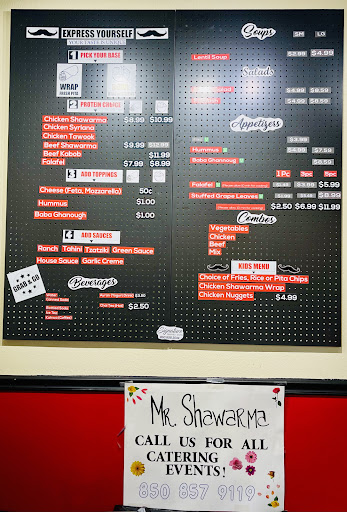 EXPRESS YOURSELF
1 PICK YOUR BASE
WRAP
2 PROTEIN CHOICE
Chicken Shawarma $8.99 $10.99
Chicken Syriana
Chicken Tawook
Beef Shawarma $9.99 $12.99
Beef Kabob $11.99
Falafel $7.99 $8.99
3 ADD TOPPINGS
Cheese (Feta, Mozzarella) 50c
Hummus $1.00
Baba Ghanough $1.00
4 ADD SAUCES
Ranch Tahini Tzatziki Green Sauce
House Sauce Garlic Creme
GRAB & GO
Beverages
$2.50
Soups SM LG
Lentil Soup $2.99 $4.99
Salads
$4.99 $8.99
$4.99 $8.59
Appetizers
$3.99
Hummus $4.99 $7.59
Baba Ghannoug $6.59
1Pc 3Pc 5Pc
Falafel $3.99 $5.99
Stuffed Grape Leaves $8.99
$2.50 $6.99 $11.99
Combos
Vegetables
Chicken
Beef
Mix
KIDS MENU
Choice of Fries, Rice or Pita Chips
Chicken Shawarma Wrap
Chicken Nuggets $4.99
Mr. Shawarma
CALL US FOR ALL
CATERING
EVENTS!
850 857 9119